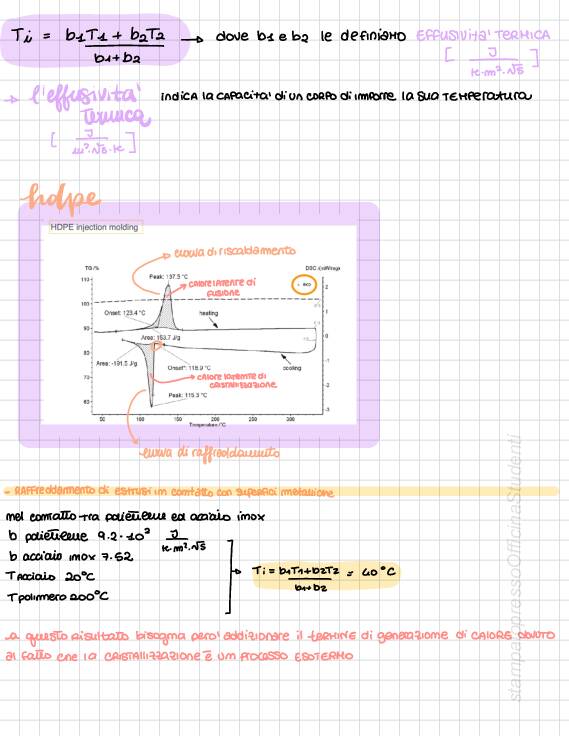 Ti = b1T1 + b2T2 / b1+b2 → dove b1 e b2 le definiamo EFFUSIVITA' TERMICA
[ J / K·m²·√s ]
→ l'effusività termica indica la capacita' di un corpo di imporre la sua temperatura
[ J / m²·√s·K ]
hdpe
HDPE injection molding
curva di riscaldamento
TG /%
DSC /(mW/mg)
Peak: 137.5 °C
calore latente di fusione
↓ exo
110
100
90
80
70
60
2
1
0
-1
-2
-3
Onset: 123.4 °C
heating
Area: 153.7 J/g
Area: -191.5 J/g
Onset*: 118.9 °C
cooling
calore latente di cristallizzazione
Peak: 115.3 °C
50 100 150 200 250 300
Temperature /°C
curva di raffreddamento
- RAFFREDDAMENTO di ESTRUSI in contatto con superfici metalliche
nel contatto tra polietilene ed acciaio inox
b polietilene 9.2·10² J / K·m²·√s
b acciaio inox 7.52
T acciaio 20°C
T polimero 200°C
→ Ti = b1T1+b2T2 / b1+b2 = 40°C
a questo risultato bisogna pero' addizionare il termine di generazione di calore dovuto
al fatto che la cristallizzazione è un processo esotermo
stampatopressoOfficinaStudenti